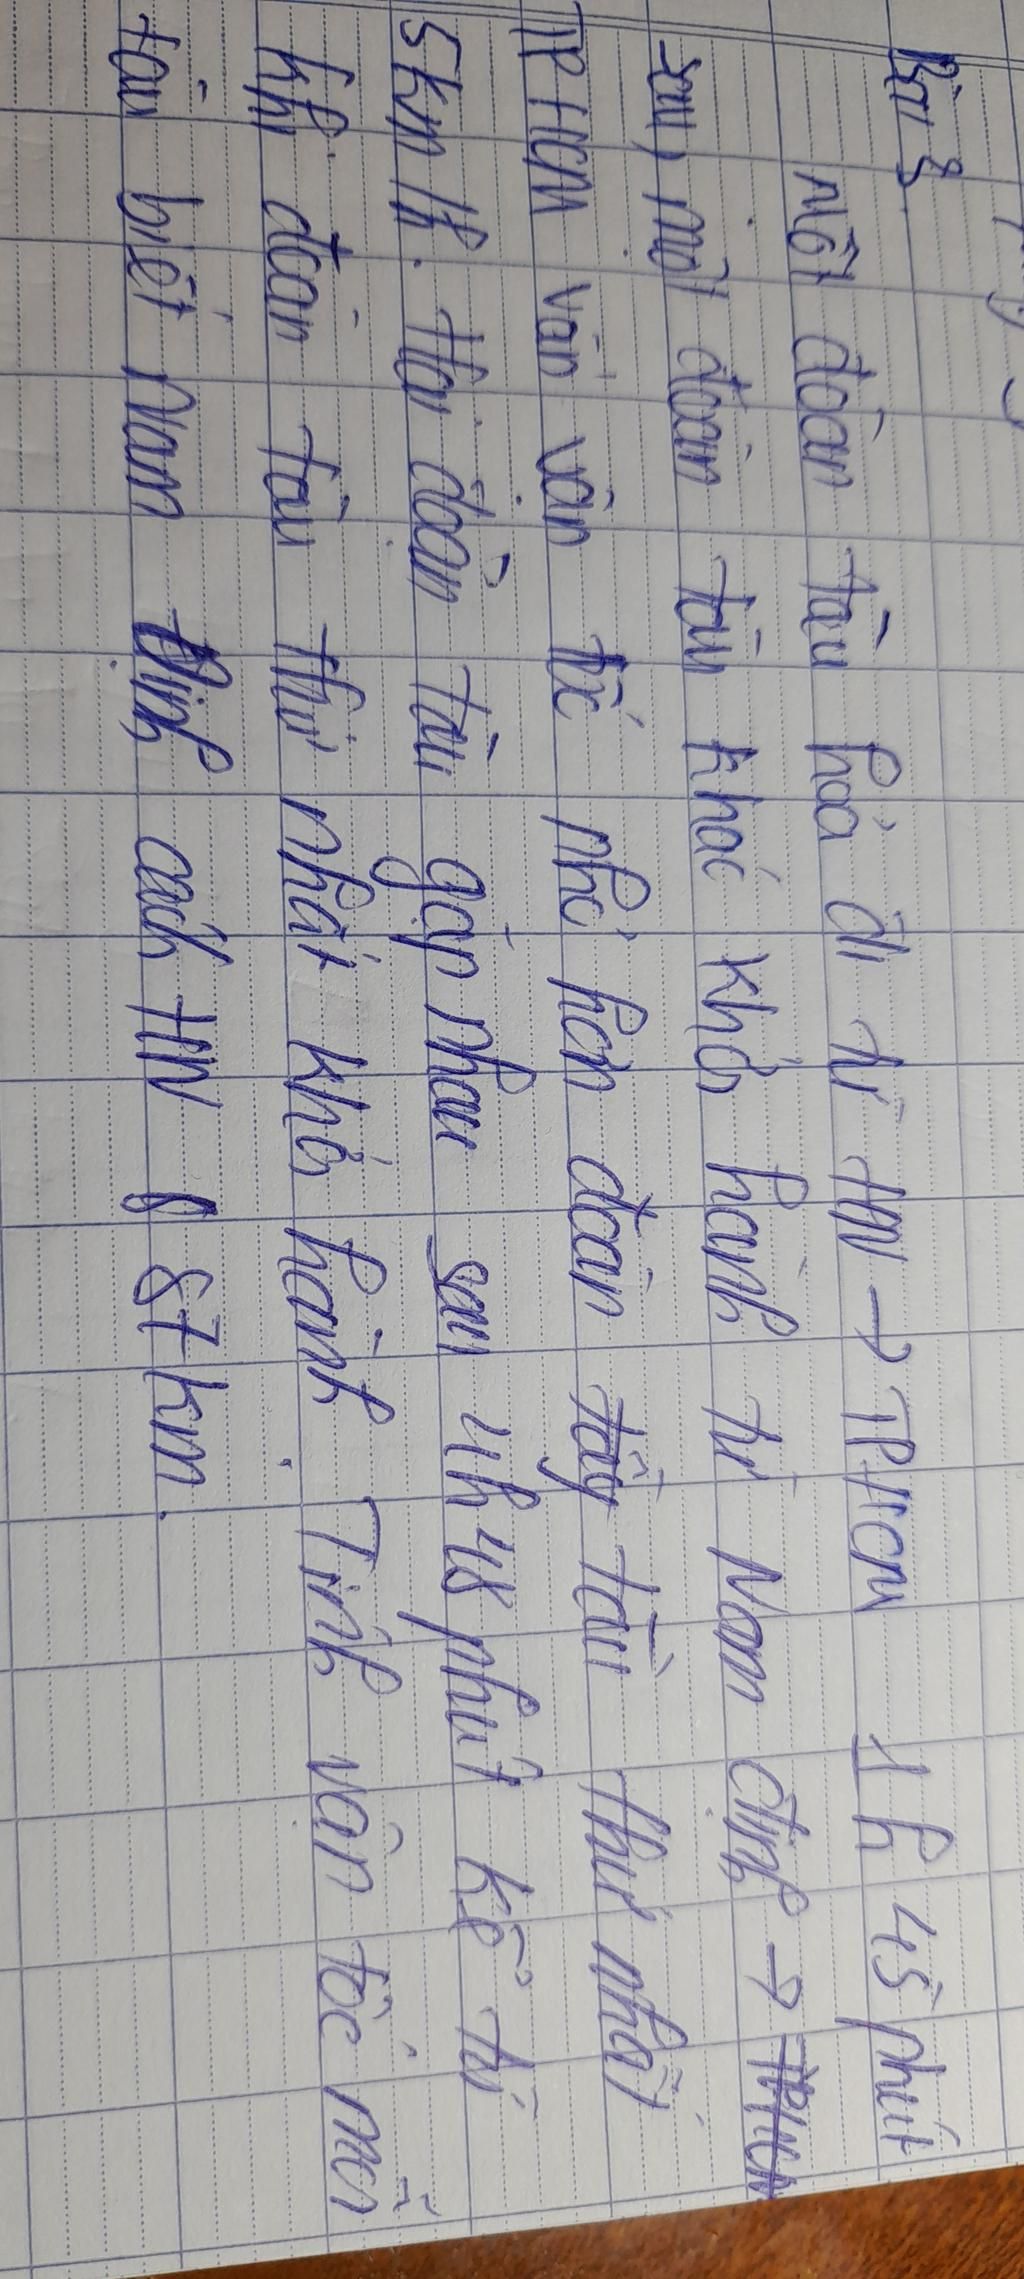 Bài 8
Một đoàn tàu hoả đi từ HN → TPHCM 1h 45 phút
sau, một đoàn tàu khác khởi hành từ Nam định →
TP HCM với vận tốc nhỏ hơn đoàn tàu thứ nhất
5km/h. Hai đoàn tàu gặp nhau sau 4h 48 phút kể từ
khi đoàn tàu thứ nhất khởi hành. Tính vận tốc mỗi
tàu biết Nam Định cách HN 87km.